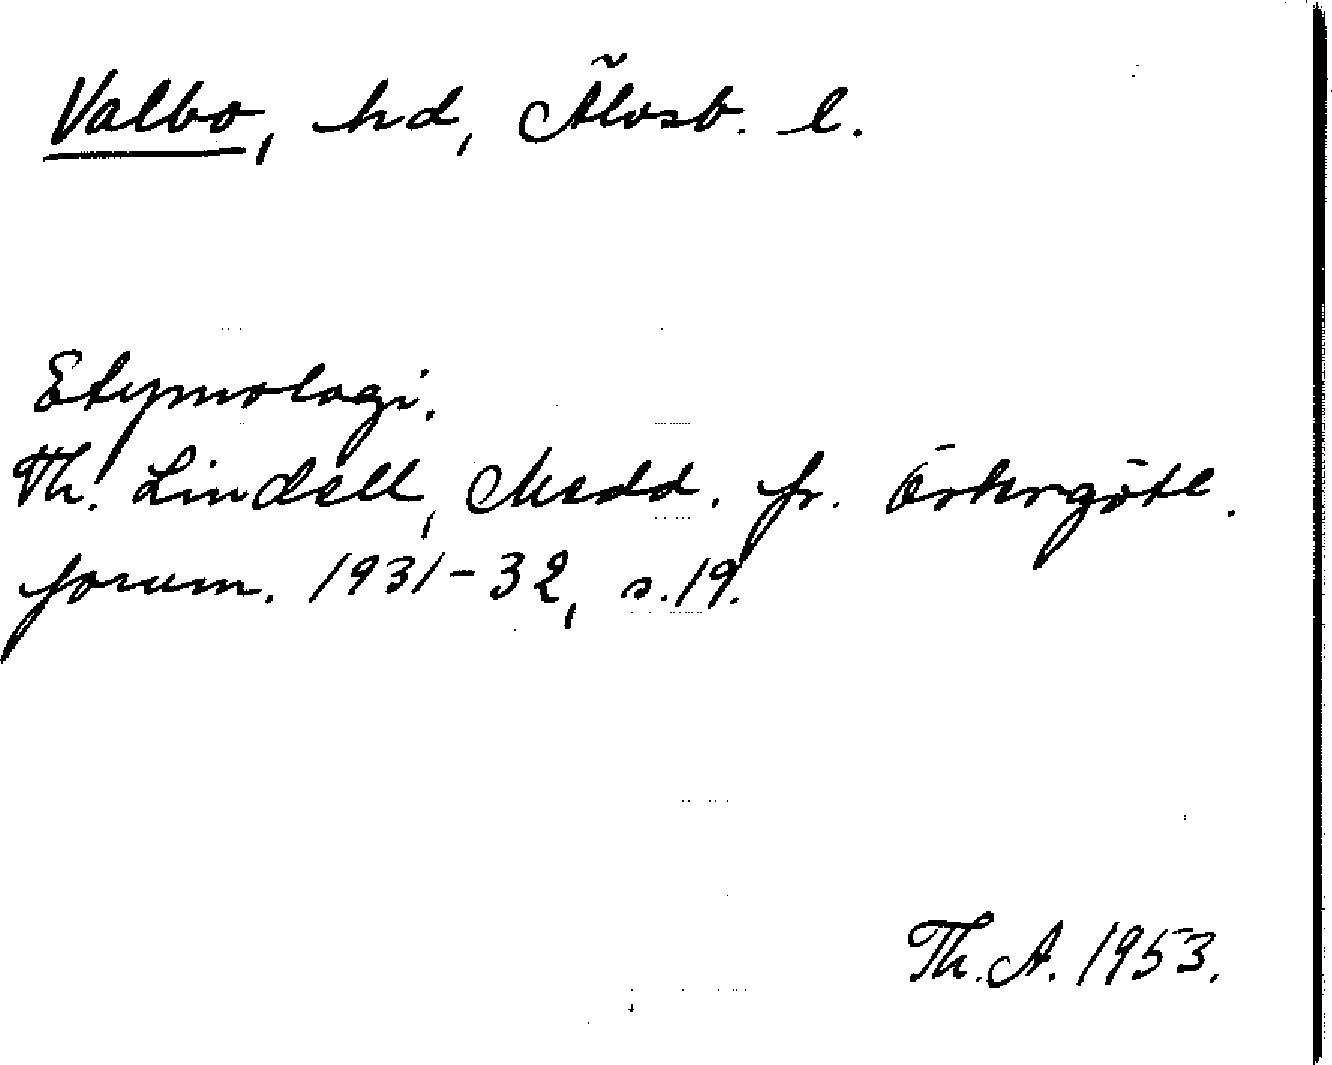 Valbo, hd, Älvsb. l.
Etymologi.
Th. Lindell, Medd. fr. Östergötl.
fornm. 1931-32, s. 19.
Th. A. 1953.